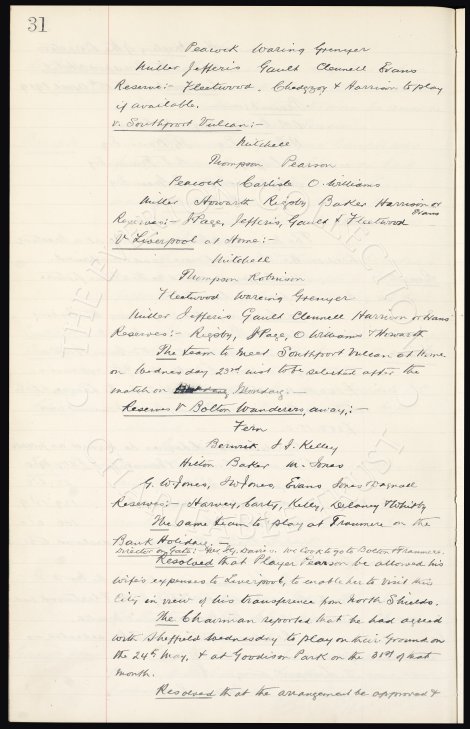 31
Peacock Waring Grenyer
Miller Jefferis Gault Clennell Evans
Reserve:- Fleetwood. Chedgzoy & Harrison to play
if available.
v. Southport Vulcan:-
Mitchell
Thompson Pearson
Peacock Carlisle O. Williams
Miller Howarth Rigsby Baker Harrison or
Evans
Reserves:- J Page, Jefferis, Gault & Fleetwood
V Liverpool at Home:-
Mitchell
Thompson Robinson
Fleetwood Wareing Grenyer
Miller Jefferis Gault Clennell Harrison or Evans
Reserves:- Rigsby, J Page, O Williams & Howarth
The team to meet Southport Vulcan at Home
on Wednesday 23rd inst to be selected after the
match on Monday:-
Reserves V Bolton Wanderers, away:-
Fern
Berwick J. J. Kelley
Hilton Baker M. Jones
G. W. Jones, Jones, Evans Jones Wagnall
Reserves:- Harvey, Carty, Kelly, Delaney & Whitby
The same team to play at Tranmere on the
Bank Holiday. -
Director on Gate: Mr Davies. W C Cook to go to Bolton & Tranmere.
Resolved that Player Pearson be allowed his
wife's expenses to Liverpool, to enable her to visit this
City in view of his transference from North Shields.
The Chairman reported that he had agreed
with Sheffield Wednesday to play on their Ground on
the 24th May, & at Goodison Park on the 31st of that
month.
Resolved that the arrangement be approved &
THE EVERTON COLLECTION